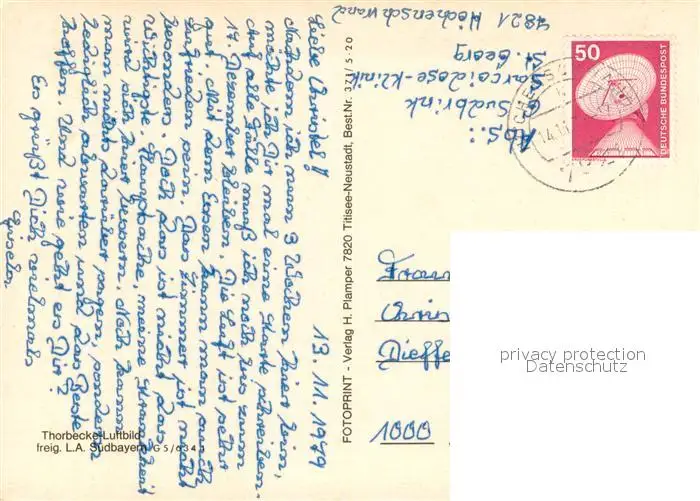 13.11.1979
Liebe Christel!
Nachdem ich nun 3 Wochen hier bin,
möchte ich Dir mal eine Karte schreiben.
Auf alle Fälle muß ich noch bis zum
17. Dezember bleiben. Die Luft ist sehr
gut. Mit dem Essen kann man auch
zufrieden sein. Das Zimmer ist nicht
besonders. Doch das ist nicht das
Wichtigste. Hauptsache, meine Krankheit
wird sich hier bessern. Noch kann
man nichts darüber sagen, sondern
lediglich abwarten und das Beste
hoffen. Und wie geht es Dir?
Es grüßt Dich vielmals
Gisela
Thorbecke-Luftbild
freig. L.A. Südbayern G 5/
FOTOPRINT - Verlag H. Plamper 7820 Titisee-Neustadt, Best.Nr. 371/5-20
Abs.:
Sudbrink
Sarcoidose-Klinik
St. Georg
7821 Höchenschwand
50
DEUTSCHE BUNDESPOST
Frau
Chris
Dieffe
1000
privacy protection
Datenschutz